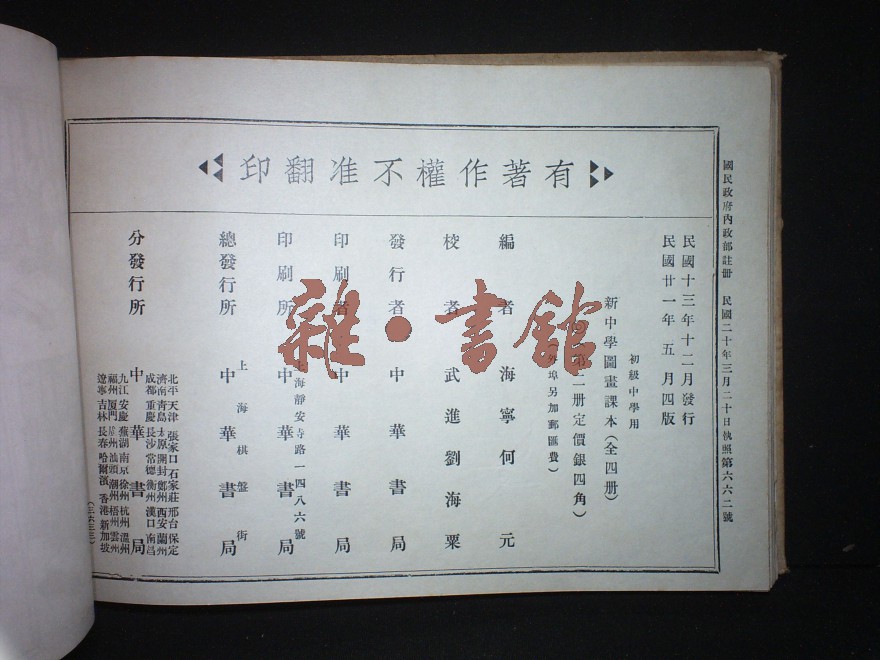 國民政府內政部註冊 民國二十年三月二十日執照第六六二號
有著作權不准翻印
民國十三年十二月發行
民國廿一年五月四版
初級中學用
新中學圖畫課本(全四册)
第二册定價銀四角)
(外埠另加郵匯費)
編者 海寧何元
校者 武進劉海粟
發行者 中華書局
印刷者 中華書局
印刷所 上海靜安寺路一四八六號 中華書局
總發行所 上海棋盤街 中華書局
分發行所 中華書局
北平 天津 張家口 石家莊 邢台 保定
濟南 青島 太原 開封 鄭州 西安 蘭州
成都 重慶 長沙 常德 衡州 漢口 南昌
九江 安慶 蕪湖 南京 徐州 杭州 溫州
福州 厦門 州 汕頭 潮州 梧州 雲州
遼寧 吉林 長春 哈爾濱 香港 新加坡
(三六三三)
雜·書館